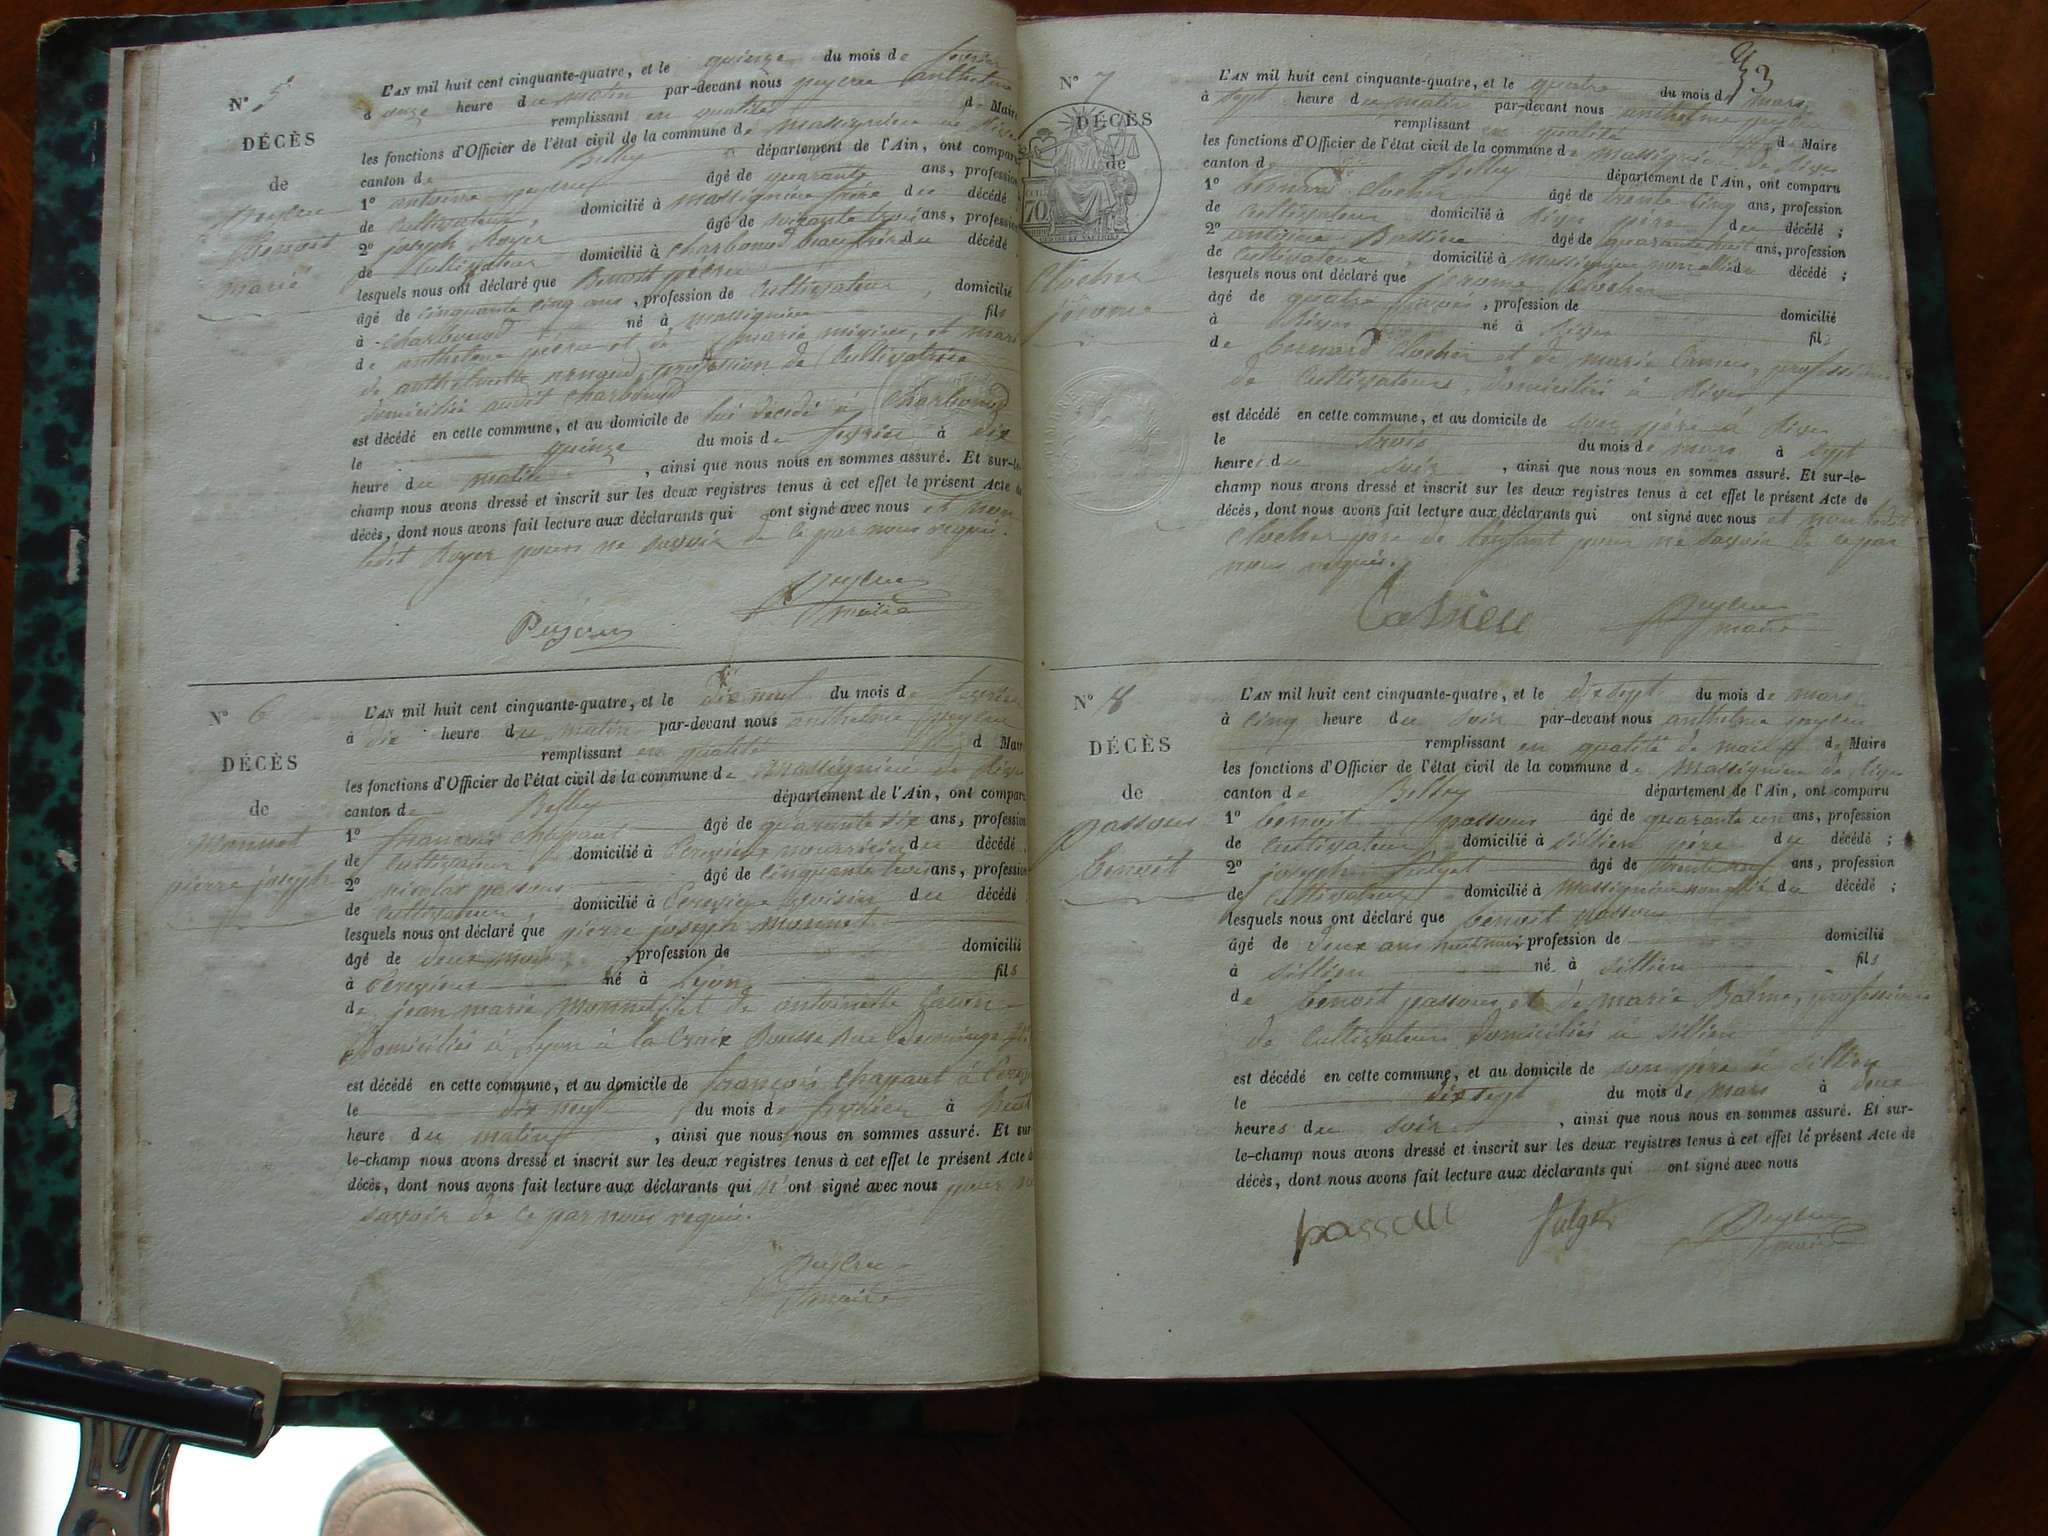 N° 5
DÉCÈS
de
Benoit
marié
L'AN mil huit cent cinquante-quatre, et le quinze du mois de février
à onze heure du matin par-devant nous peyleu anthelme
remplissant en qualité de Maire
les fonctions d'Officier de l'état civil de la commune de massignieu de rives
canton de Belley département de l'Ain, ont comparu
1° antoine âgé de quarante ans, profession
de Cultivateur, domicilié à massignieu frère du décédé
2° joseph Royer âgé de soixante trois ans, profession
de Cultivateur domicilié à charbonod beau frère du décédé
lesquels nous ont déclaré que Benoit
âgé de cinquante cinq ans, profession de Cultivateur, domicilié
à charbonod né à massignieu fils
de anthelme et de marie et mari
de anthelmette profession de Cultivatrice
domiciliée audit charbonod
est décédé en cette commune, et au domicile de lui décédé à Charbonod
le quinze du mois de février à dix
heure du matin, ainsi que nous nous en sommes assuré. Et sur-le-
champ nous avons dressé et inscrit sur les deux registres tenus à cet effet le présent Acte de
décès, dont nous avons fait lecture aux déclarants qui ont signé avec nous et non
ledit Royer pour ne savoir de ce par nous requis.
Peyleu
maire
N° 6
DÉCÈS
de
Monnet
pierre joseph
L'AN mil huit cent cinquante-quatre, et le dix neuf du mois de février
à dix heure du matin par-devant nous anthelme peyleu
remplissant en qualité d Maire
les fonctions d'Officier de l'état civil de la commune de Massignieu de rives
canton de Belley département de l'Ain, ont comparu
1° françois chapaut âgé de quarante six ans, profession
de Cultivateur domicilié à nourricier du décédé
2° nicolas passous âgé de cinquante trois ans, profession
de Cultivateur, domicilié à voisin du décédé
lesquels nous ont déclaré que pierre joseph Monnet
âgé de deux mois, profession de domicilié
à né à Lyon fils
de jean marie Monnet et de antoinette
Domiciliés à Lyon à la Croix Rousse rue
est décédé en cette commune, et au domicile de françois chapaut à
le dix neuf du mois de février à huit
heure du matin, ainsi que nous nous en sommes assuré. Et sur
le-champ nous avons dressé et inscrit sur les deux registres tenus à cet effet le présent Acte de
décès, dont nous avons fait lecture aux déclarants qui n'ont signé avec nous pour ne
savoir de ce par nous requis.
Peyleu
maire
33
N° 7
DÉCÈS
de
Clocher
jérome
70
L'AN mil huit cent cinquante-quatre, et le quatre du mois de mars
à sept heure du matin par-devant nous anthelme peyleu
remplissant en qualité d Maire
les fonctions d'Officier de l'état civil de la commune de massignieu de rives
canton de Belley département de l'Ain, ont comparu
1° bernard Clocher âgé de trente cinq ans, profession
de Cultivateur domicilié à Rives père du décédé ;
2° antoine âgé de quarante huit ans, profession
de Cultivateur, domicilié à massignieu non allié du décédé ;
lesquels nous ont déclaré que jérome Clocher
âgé de quatre mois, profession de domicilié
à Rives né à Rives fils
de bernard Clocher et de marie profession
de Cultivateurs, domiciliés à Rives
est décédé en cette commune, et au domicile de son père à Rives
le trois du mois de mars à sept
heures du soir, ainsi que nous nous en sommes assuré. Et sur-le-
champ nous avons dressé et inscrit sur les deux registres tenus à cet effet le présent Acte de
décès, dont nous avons fait lecture aux déclarants qui ont signé avec nous et non ledit
Clocher père de l'enfant pour ne savoir de ce par
nous requis.
Peyleu
maire
N° 8
DÉCÈS
de
passous
benoit
L'AN mil huit cent cinquante-quatre, et le dix sept du mois de mars
à cinq heure du soir par-devant nous anthelme peyleu
remplissant en qualité de maire d Maire
les fonctions d'Officier de l'état civil de la commune de Massignieu de rives
canton de Belley département de l'Ain, ont comparu
1° benoit passous âgé de quarante un ans, profession
de Cultivateur domicilié à sillien père du décédé ;
2° joseph fulget âgé de trente neuf ans, profession
de Cultivateur domicilié à Massignieu non allié du décédé ;
lesquels nous ont déclaré que benoit passous
âgé de deux ans huit mois profession de domicilié
à sillien né à sillien fils
de benoit passous et de marie Balme, profession
de Cultivateurs domiciliés à sillien
est décédé en cette commune, et au domicile de son père à sillien
le dix sept du mois de mars à deux
heures du soir, ainsi que nous nous en sommes assuré. Et sur-
le-champ nous avons dressé et inscrit sur les deux registres tenus à cet effet le présent Acte de
décès, dont nous avons fait lecture aux déclarants qui ont signé avec nous
passou fulget Peyleu
maire